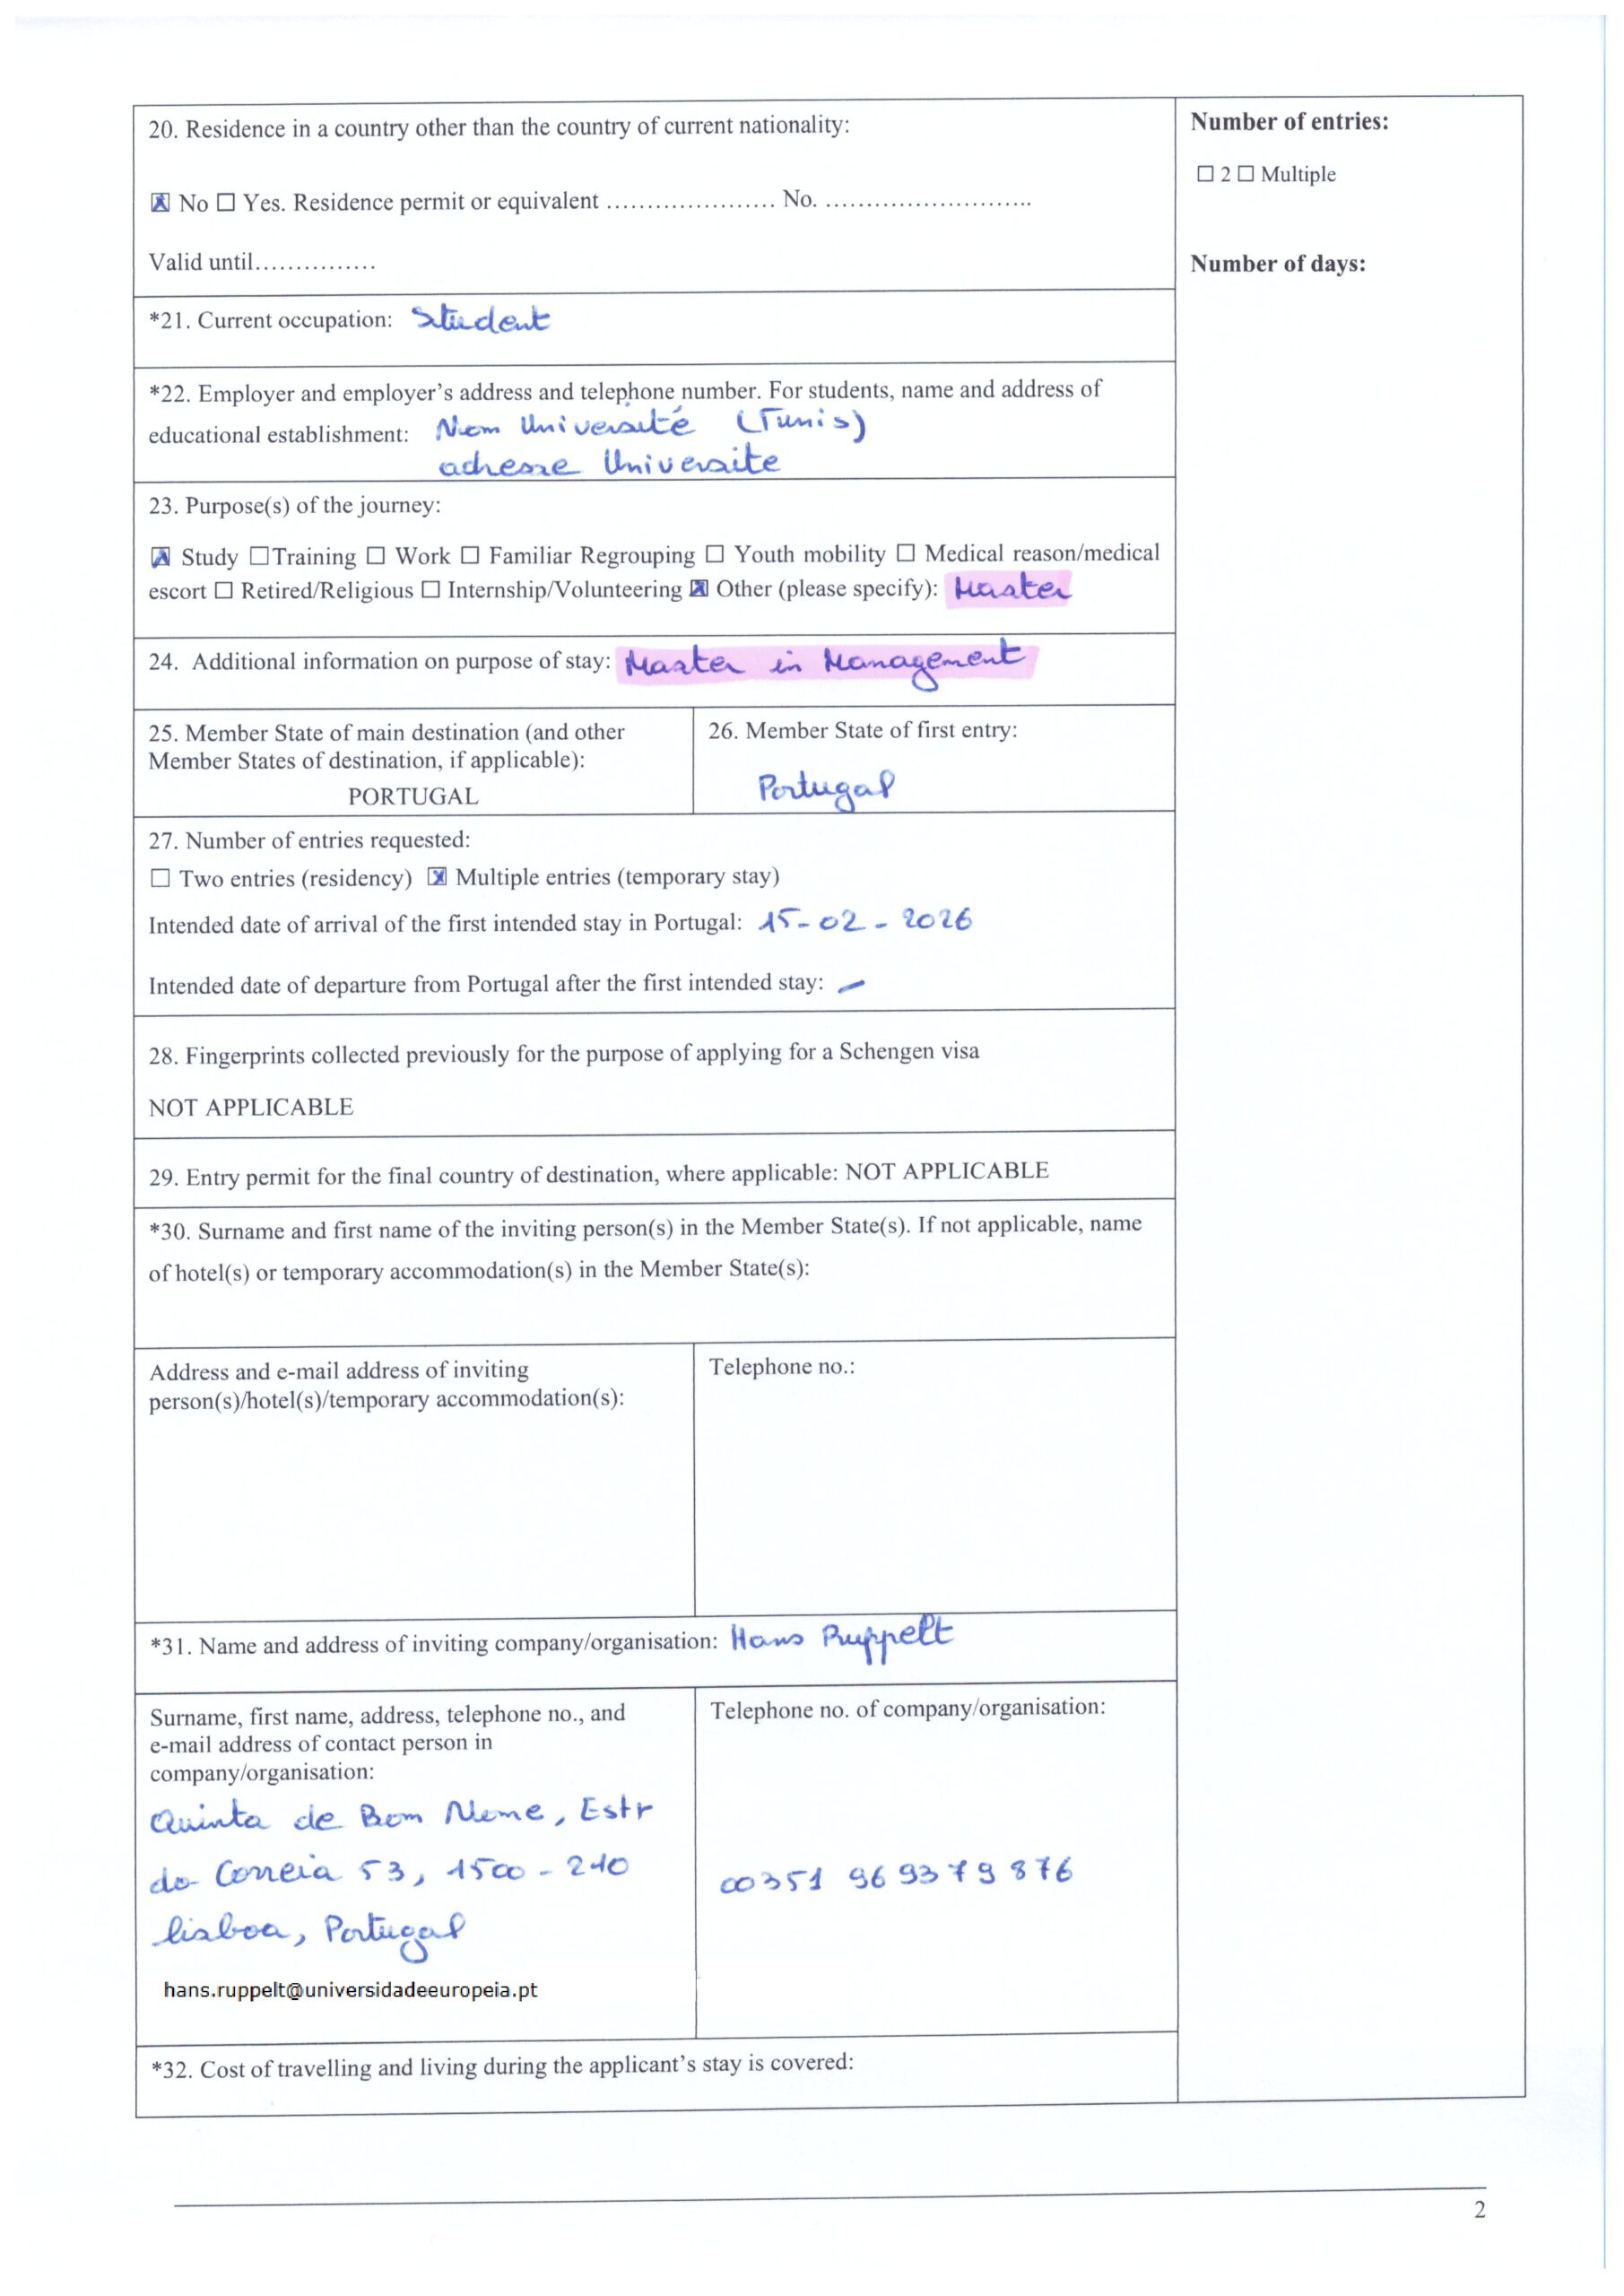 20. Residence in a country other than the country of current nationality:
☒ No ☐ Yes. Residence permit or equivalent ..................... No. ..........................
Valid until...............
Number of entries:
☐ 2 ☐ Multiple
Number of days:
*21. Current occupation: Student
*22. Employer and employer's address and telephone number. For students, name and address of
educational establishment: Nom Université (Tunis)
adresse Universite
23. Purpose(s) of the journey:
☒ Study ☐Training ☐ Work ☐ Familiar Regrouping ☐ Youth mobility ☐ Medical reason/medical
escort ☐ Retired/Religious ☐ Internship/Volunteering ☒ Other (please specify): Master
24. Additional information on purpose of stay: Master in Management
25. Member State of main destination (and other
Member States of destination, if applicable):
PORTUGAL
26. Member State of first entry:
Portugal
27. Number of entries requested:
☐ Two entries (residency) ☒ Multiple entries (temporary stay)
Intended date of arrival of the first intended stay in Portugal: 15-02-2026
Intended date of departure from Portugal after the first intended stay: –
28. Fingerprints collected previously for the purpose of applying for a Schengen visa
NOT APPLICABLE
29. Entry permit for the final country of destination, where applicable: NOT APPLICABLE
*30. Surname and first name of the inviting person(s) in the Member State(s). If not applicable, name
of hotel(s) or temporary accommodation(s) in the Member State(s):
Address and e-mail address of inviting
person(s)/hotel(s)/temporary accommodation(s):
Telephone no.:
*31. Name and address of inviting company/organisation: Hans Ruppelt
Surname, first name, address, telephone no., and
e-mail address of contact person in
company/organisation:
Quinta de Bom Nome, Estr
do Correia 53, 1500-210
lisboa, Portugal
hans.ruppelt@universidadeeuropeia.pt
Telephone no. of company/organisation:
00351 969379876
*32. Cost of travelling and living during the applicant's stay is covered:
2